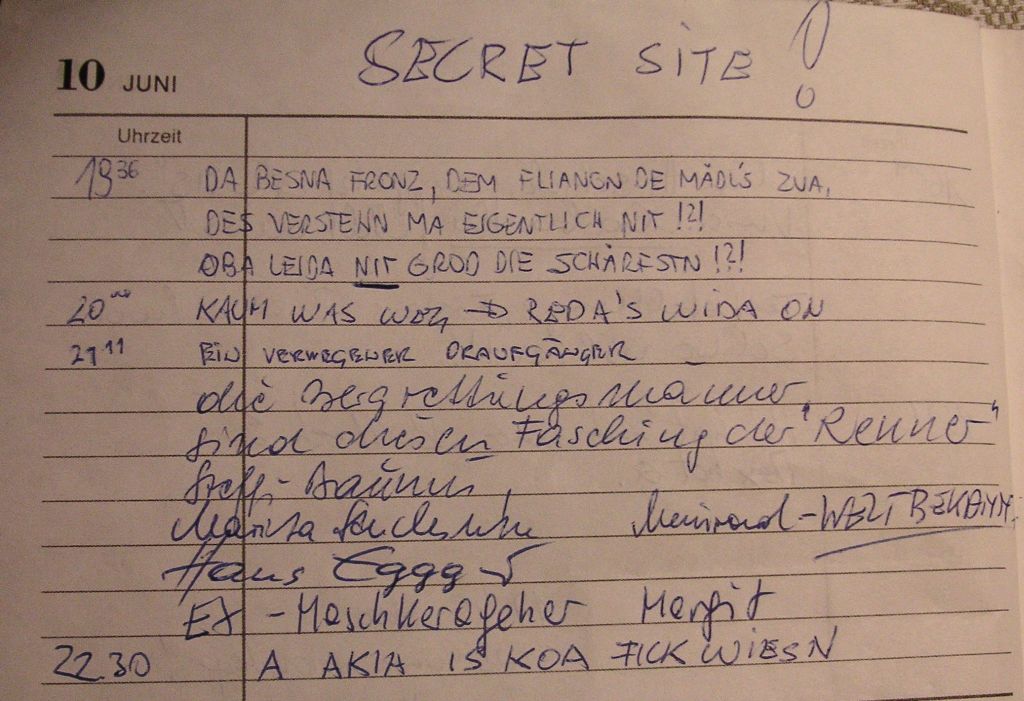 10 JUNI SECRET SITE !
Uhrzeit
19 36 DA BESNA FRONZ, DEM FLIANGN DE MÄDL'S ZUA,
DES VERSTEHN MA EIGENTLICH NIT !?!
OBA LEIDA NIT GROD DIE SCHÄRFSTN !?!
20 00 KAUM WAS WOG → REDA'S WIDA ON
21 11 EIN VERWEGENER DRAUFGÄNGER
die Bergrettungsmänner
sind diesen Fasching der "Renner"
Steffi
Marisa Meinrad - WELTBEKANNT
Hans Eggg
EX - Maschkerageher Margit
22.30 A AKIA IS KOA FICKWIESN